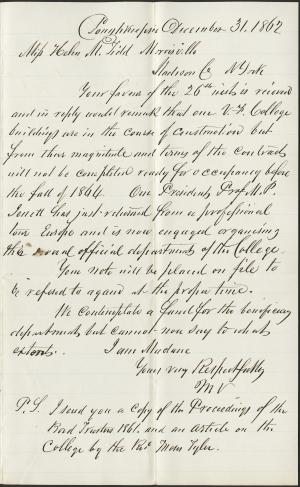 Poughkeepsie December 31. 1862
Miss Helen M. Morrisville
Madison Co N York
Your favor of the 26th inst is received
and in reply would remark that our V. F. College
buildings are in the course of construction but
from their magnitude and terms of the contracts
will not be completed ready for occupancy before
the fall of 1864. Our President Prof M. P.
Jewett has just returned from a professional
tour Europe and is now engaged organising
the official departments of the College.
Your note will be placed on file to
be refered to again at the proper time.
We contemplate a fund for the beneficiary
departments but cannot now say to what
extent. I am Madame
Yours very Respectfully
M V
P. S. I send you a copy of the Proceedings of the
Board Trustees 1861. and an Article on the
College by the Revd Moses Tyler.